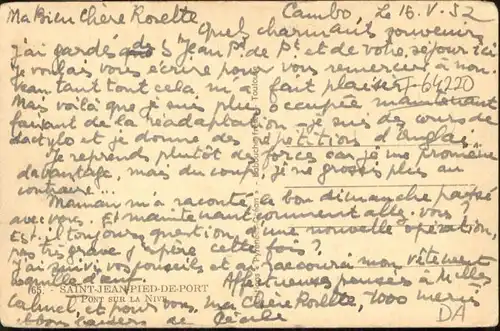 Ma Bien Chère Rosette Cambo, Le 16.V.52
Quel charmant souvenir
j'ai gardé de St Jean Pd de Pt et de votre séjour ici
je voulais vous écrire pour vous remercier à nou-
veau tant tout cela m'a fait plaisir J-64220
Mais voilà que je suis plus occupée maintenant
faisant de la réadaptation - je suis des cours de
dactylo et je donne des répétitions d'anglais.
Je reprends plutôt des forces car je me promène
davantage, mais du coup je ne grossis plus au
contraire...
Maman m'a raconté le bon dimanche passé
avec vous. Et maintenant comment allez-vous?
Est-il toujours question d'une nouvelle opération,
pas très grave j'espère cette fois?
J'ai suivi vos conseils et ai raccourci mon vêtement
165. - SAINT-JEAN-PIED-DE-PORT
PONT SUR LA NIVE
Affectueuses pensées à Melles
et pour vous, ma Chère Rosette, 1000 mercis
et bons baisers de Cécile
DA